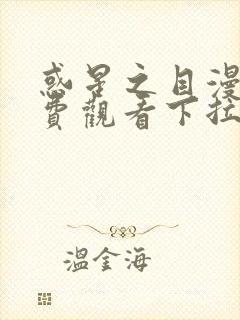 惑星之目漫
費觀看下拉
溫金海